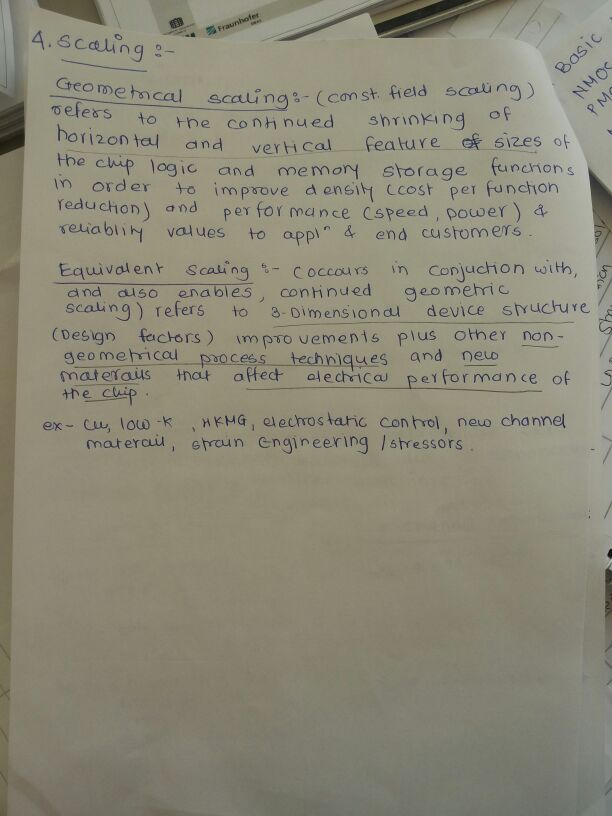 Fraunhofer
4. Scaling :-
Geometrical scaling:- (const. field scaling)
refers to the continued shrinking of
horizontal and vertical feature of sizes of
the chip logic and memory storage functions
in order to improve density (cost per function
reduction) and performance (speed, power) &
reliablity values to applⁿ & end customers.
Equivalent Scaling :- (occours in conjuction with,
and also enables, continued geometric
scaling) refers to 3-Dimensional device structure
(Design factors) improvements plus other non-
geometrical process techniques and new
materails that affect electrical performance of
the chip.
ex- Cu, low-k, HKMG, electrostatic control, new channel
materail, strain Engineering /stressors.
Basic
NMOS